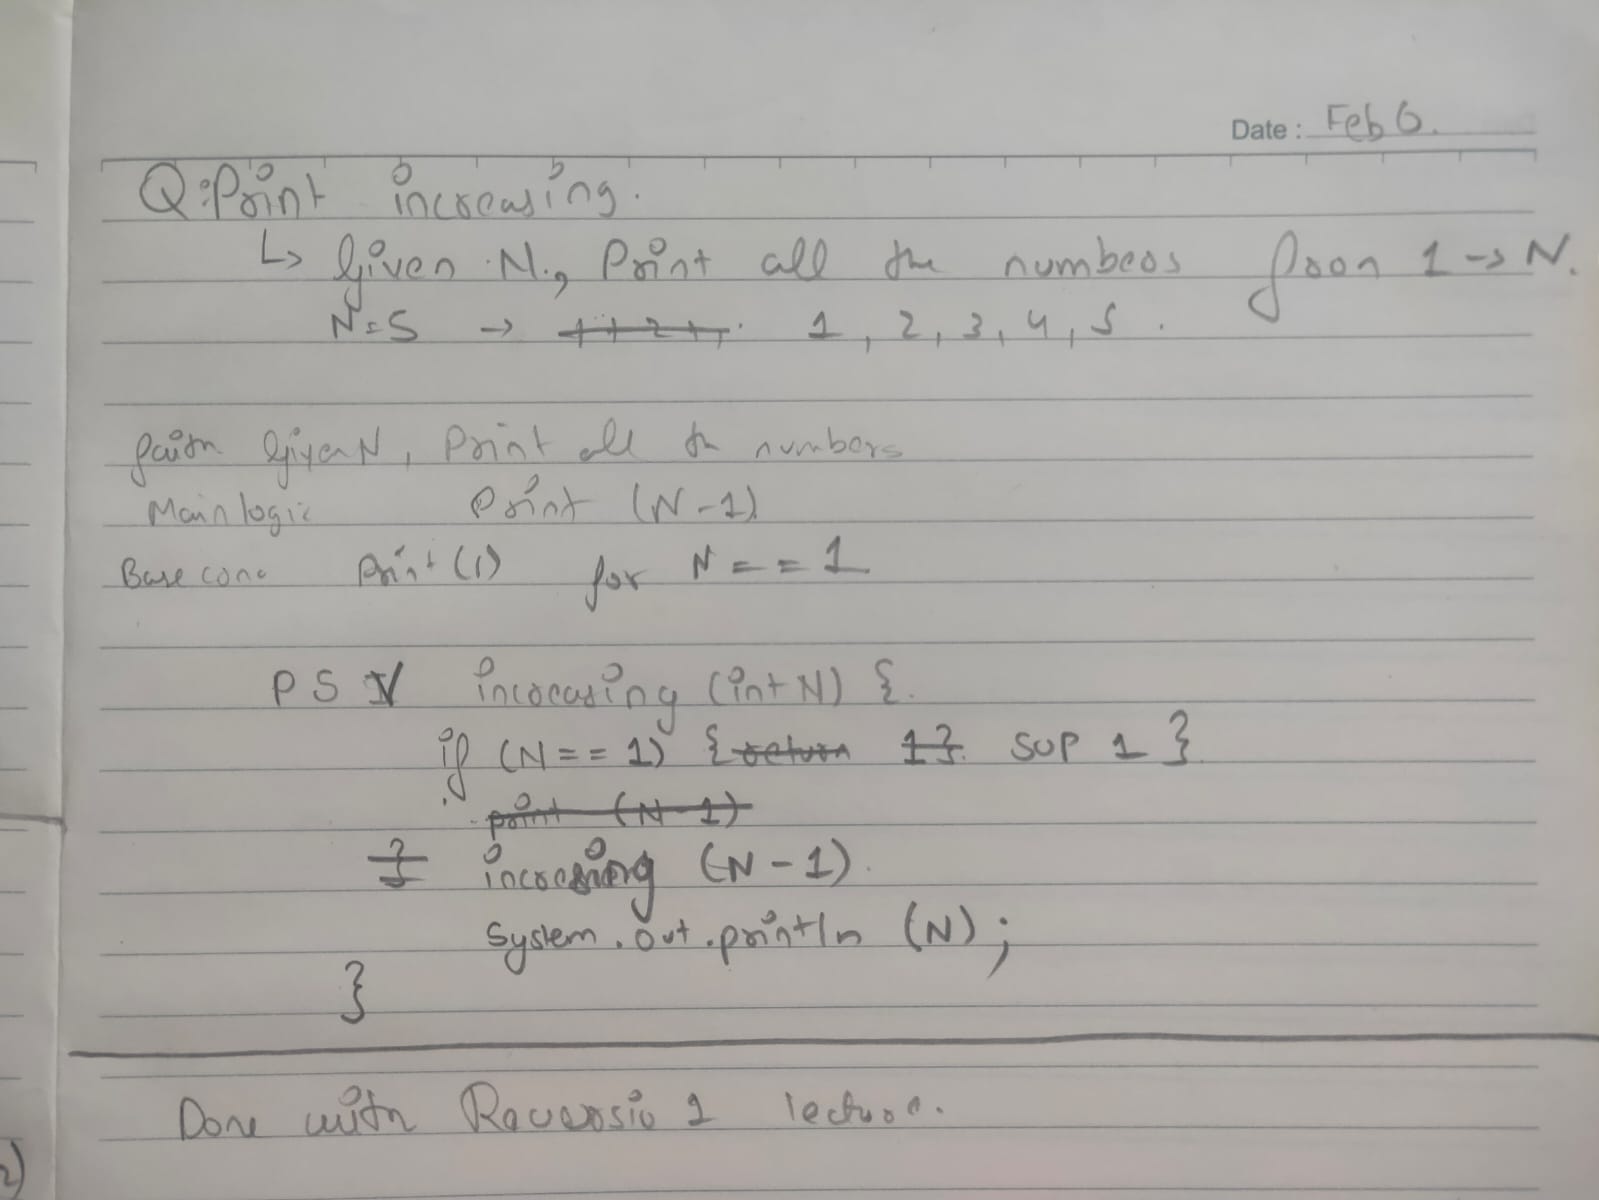 Date : Feb 6.
Q: Print increasing.
↳ Given N., Print all the numbers from 1 → N.
N=5 → 1, 2, 3, 4, 5.
faith Given N, Print all the numbers
Main logic Print (N-1)
Base con Print (1) for N == 1
P S V increasing (int N) {.
if (N == 1) { return 1 }. SOP 1 }
print (N-1)
} increasing (N-1).
System.out.println (N);
}
Done with Recursio 1 lecture.
2)